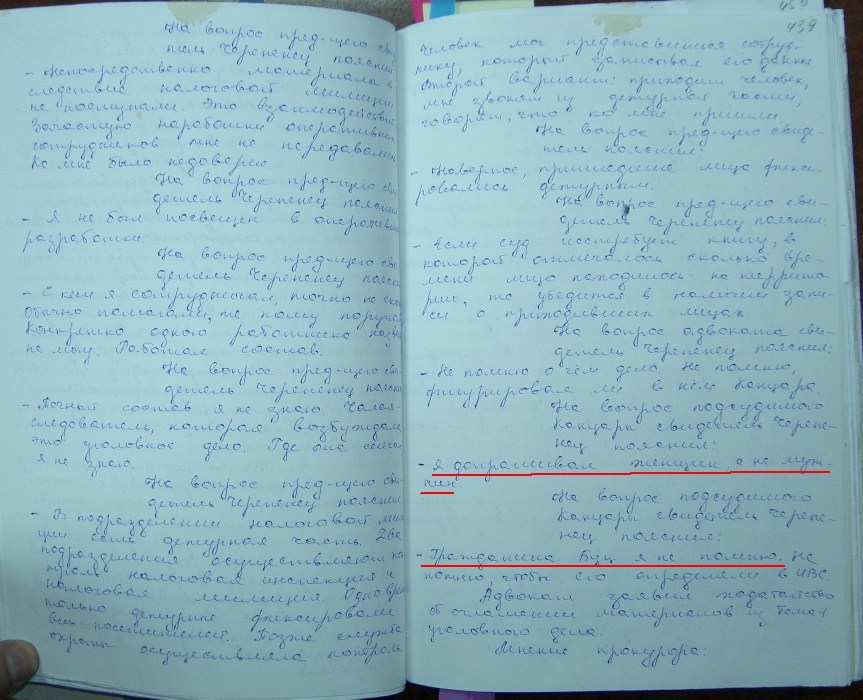 На вопрос пред-щего сви
тель Черепенец пояснил
- Непосредственно материалы в
следствие налоговой милиции
не поступали. Это взаимодействие
Зачастую наработки оперативных
сотрудников мне не передавались
Ко мне было недоверие.
На вопрос пред-щего сви
детель Черепенец пояснил
- Я не был посвещен в оперативные
разработки.
На вопрос пред-щего сви
детель Черепенец поясн
- С кем я сотрудничал, точно не
Обычно помогали, те кому поруча
Конкретно одного работника назва
не могу. Работал состав.
На вопрос пред-щего сви
детель Черепенец поясни
- Точный состав я не знаю.
следователь, которая возбуждала
это уголовное дело. Где она сейчас
я не знаю.
На вопрос пред-щего сви
детель Черепенец пояснил
- В подразделении налоговой мили
ции есть дежурная часть. Два
подразделения осуществляют кон
троль налоговая инспекция и
налоговая милиция. Одно вре
только дежурные фиксировали
всех посетителей. Позже служба
охраны осуществляла контроль.
439
Человек мог представиться сотруд-
нику, который записывал его данные
Второй вариант: приходит человек,
мне звонят из дежурной части,
говорят, что ко мне пришли.
На вопрос пред-щего свиде-
тель пояснил:
- Наверное, пришедшие лица фикси-
ровались дежурным.
На вопрос пред-щего сви-
детель Черепенец пояснил:
- Если суд истребует книгу, в
которой отмечалось сколько вре-
мени лицо находилось на террито-
рии, то убедится в наличии запи-
си о приходивших лицах
На вопрос адвоката сви-
детель Черепенец пояснил:
- Не помню о чём дело. Не помню,
фигурировал ли в нём Канцара.
На вопрос подсудимого
Канцары свидетель Черепе-
нец пояснил:
- Я допрашивал женщин, а не муж-
чин.
На вопрос подсудимого
Канцары свидетель Черепе-
нец пояснил:
- Гражданина Буц я не помню. Не
помню, чтобы его определяли в ИВС.
Адвокат заявил ходатайство
об оглашении материалов из тома
уголовного дела.
Мнение прокурора: